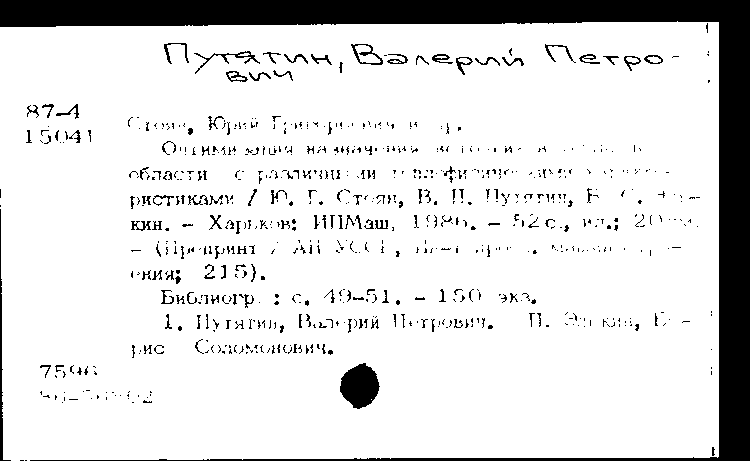 Путятин, Валерий Петро-
вич
87-4
15041
Стоян, Юрий Григорьевич и др.
Оптимизация назначения в
области с различными теплофизическими
ристиками / Ю. Г. Стоян, В. П. Путятин, Б. С.
кин. - Харьков: ИПМаш, 1986. - 52с., ил.; 20 см.
- (Препринт / АН УССР,
ения; 215).
Библиогр.: с. 49-51. - 150 экз.
1. Путятин, Валерий Петрович. П.
рис Соломонович.
7596